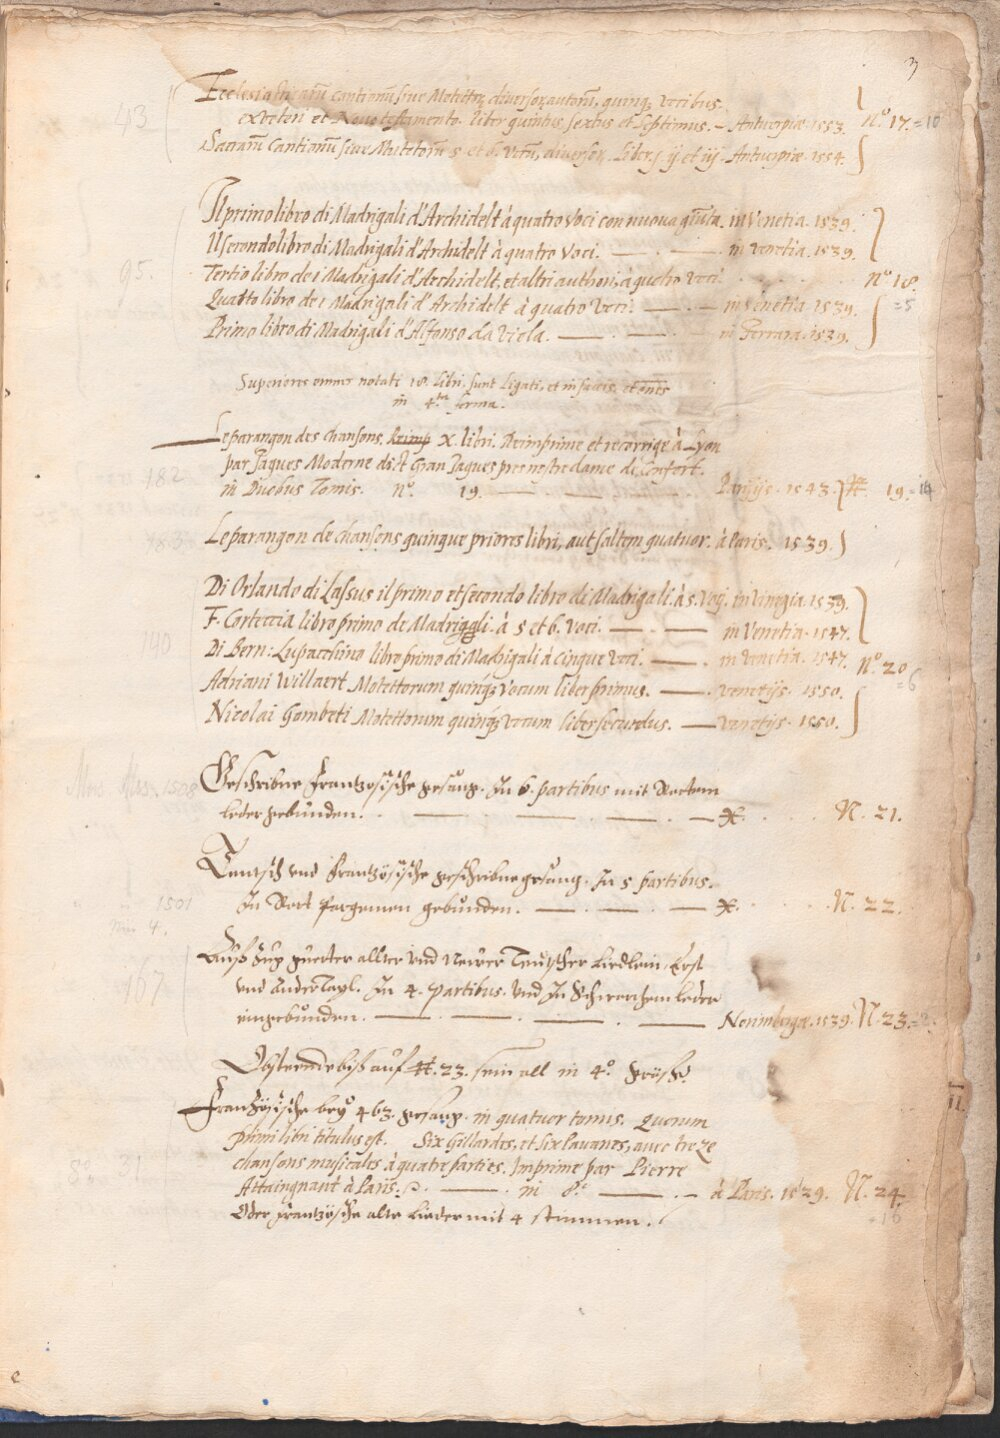 3
Ecclesiasticarũ cantionũ sive Motettor. diversor. autorũ, quinq; vocibus.
ex veteri et Novo testamento. liber quintus, sextus et Septimus. – Antverpiae. 1553.
43
Nº. 17. =10
Sacrarũ Cantionũ sive Motetorũ 5 et 6. vocũ, diversor. Liber j. ij et iij. Antverpiae. 1554.
Il primo libro di Madrigali d'Archidelt à quatro voci con nuova giũta. in Venetia. 1539.
Il secondo libro di Madrigali d'Archidelt à quatro voci. — · — in Venetia. 1539.
95.
Tertio libro de i Madrigali d'Archidelt, et altri authori, à quatro voci.
Nº 18.
Quarto libro de i Madrigali d'Archidelt à quatro voci. — · — in Venetia 1539.
=5
Primo libro di Madrigali d'Alfonso da Viola. — · — in Ferrara. 1539.
Superiores omnes notati 18. libri. sunt ligati, et in fasces. et oẽs
in 4.ta forma.
Le parangon des chansons. Reimp X libri. Reimprime et recorrige à Lyon
par Jaques Moderne dict Gran Jaques pres nostre dame de Confort.
182
in Duobus Tomis. Nº. 19. — — Parisijs. 1543. N. 19. =14
183.
Le parangon de chansons quinque priores libri, aut saltem quatuor. à Paris. 1539.
Di Orlando di Lassus il primo et secondo libro di Madrigali. à 5. Voci. in Vinegia. 1539.
F. Corteccia libro primo de Madriggli. à 5 et 6. voci. — · — in Venetia. 1547.
190
Di Bern: Lupacchino libro primo di Madrigali à cinque voci. — · in Venetia. 1547.
Nº. 20
=6
Adriani Willaert Motettorum quinq; vocum liber primus. — · venetijs. 1550.
Nicolai Gombeti Motettorum quinq; vocum liber secundus. — venetijs. 1550.
Mus. Mss. 1508
Geschribne Frantzösische gesang. In 6. partibus mit Rottem
leder gebunden. · — · — · — · — X · · · N. 21.
Teutsch und Frantzösische geschribne gesang. In 5 partibus.
1501
In Rott Pergemen gebunden. — · — · — X. · · · N. 22.
Außzug guetter allter und Newer Teutscher Liedlein. Erst
167
und Ander Tayl. In 4. partibus. und In Schwartzem leder
eingebunden. — · — · — · — Norimbergae. 1539. N. 23.
Obsteende biß auf N. 23. sein all in 4º.
Frantzösische bey 463. gesang. in quatuor tomis. Quorum
primi libri titulus est. Six Gillardes, et six Pavanes, avec treze
8º 31
chansons musicales à quatre parties. Imprime par Pierre
Attaingnant à Paris. — · in 8º. — · – à Paris. 1529. N. 24.
=16
Oder Frantzösche alte Lieder mit 4 stimmen.
11.